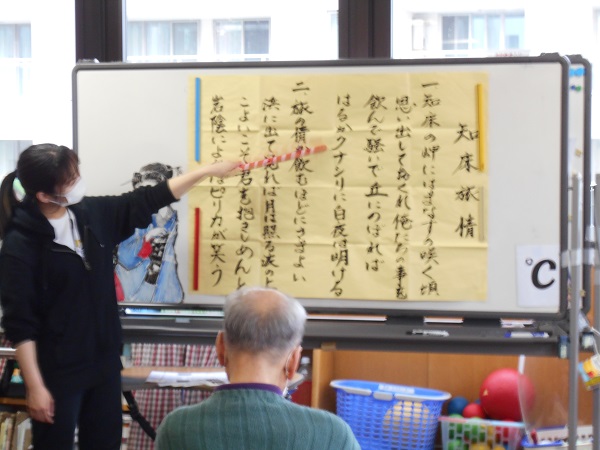 知床旅情
一、知床の岬にはまなすの咲く頃
思い出しておくれ俺たちの事を
飲んで騒いで丘にのぼれば
はるかクナシリに白夜は明ける
二、旅の情か飲むほどにさまよい
浜に出て見れば月は照る波の上
こよいこそ君を抱きしめんと
岩陰によればピリカが笑う
℃